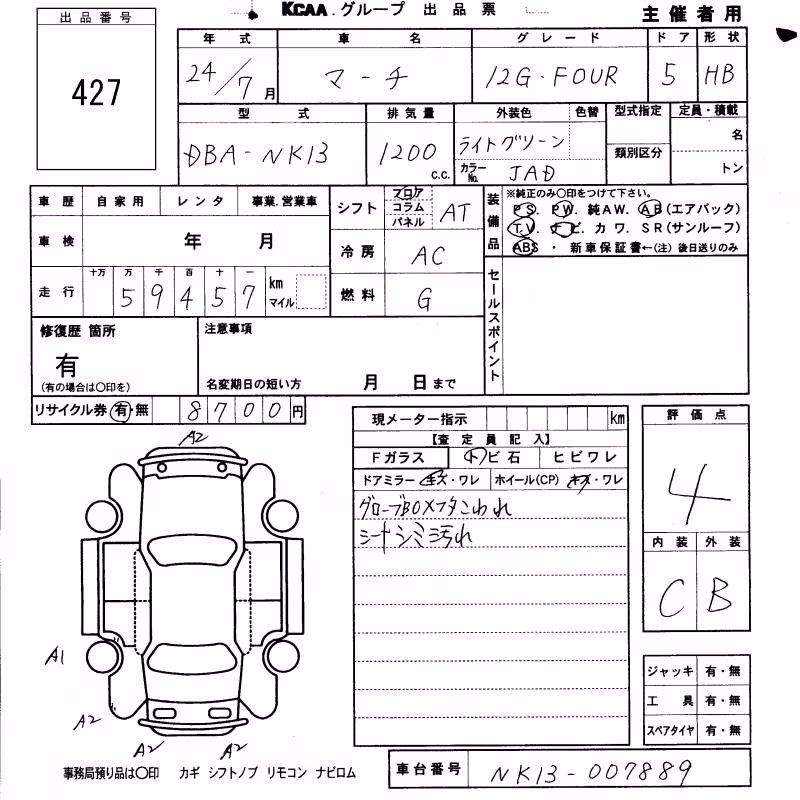 KCAA.グループ 出品票 主催者用
出品番号
427
年式 車名 グレード ドア 形状
24/7月 マーチ 12G・FOUR 5 HB
型式 排気量 外装色 色替 型式指定 定員・積載
DBA-NK13 1200 C.C. ライトグリーン 類別区分 名
カラーNo. JAD トン
車歴 自家用 レンタ 事業.営業車
車検 年 月
走行 十万 万 千 百 十 一 km マイル
59457
シフト フロア コラム パネル AT
冷房 AC
燃料 G
装備品 ※純正のみ○印をつけて下さい。
PS. PW. 純AW. AB(エアバック)
TV. ナビ. カワ. SR(サンルーフ)
ABS ・ 新車保証書←(注) 後日送りのみ
セールスポイント
修復歴 箇所
有
(有の場合は○印を)
注意事項
名変期日の短い方 月 日まで
リサイクル券 有・無 8700円
現メーター指示 km
【査定員記入】
Fガラス トビ石 ヒビワレ
ドアミラー キズ・ワレ ホイール(CP) キズ・ワレ
グローブBOXフタこわれ
シートシミ汚れ
評価点
4
内装 外装
C B
A2
A1
A2
A2 A2
ジャッキ 有・無
工具 有・無
スペアタイヤ 有・無
事務局預り品は○印 カギ シフトノブ リモコン ナビロム
車台番号 NK13-007889